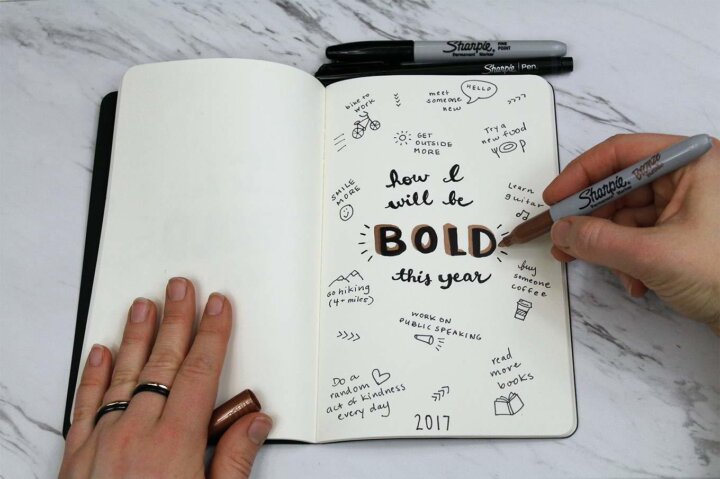 Sharpie
FINE POINT
Permanent Marker
Sharpie Pen
bike to
work
meet
someone
new
HELLO
GET
OUTSIDE
MORE
Try a
new food
SMILE
MORE
how I
will be
BOLD
this year
Learn
guitar
Sharpie
Bronze
go hiking
(4+ miles)
buy
someone
coffee
WORK ON
PUBLIC SPEAKING
Do a
random
act of kindness
every day
read
more
books
2017